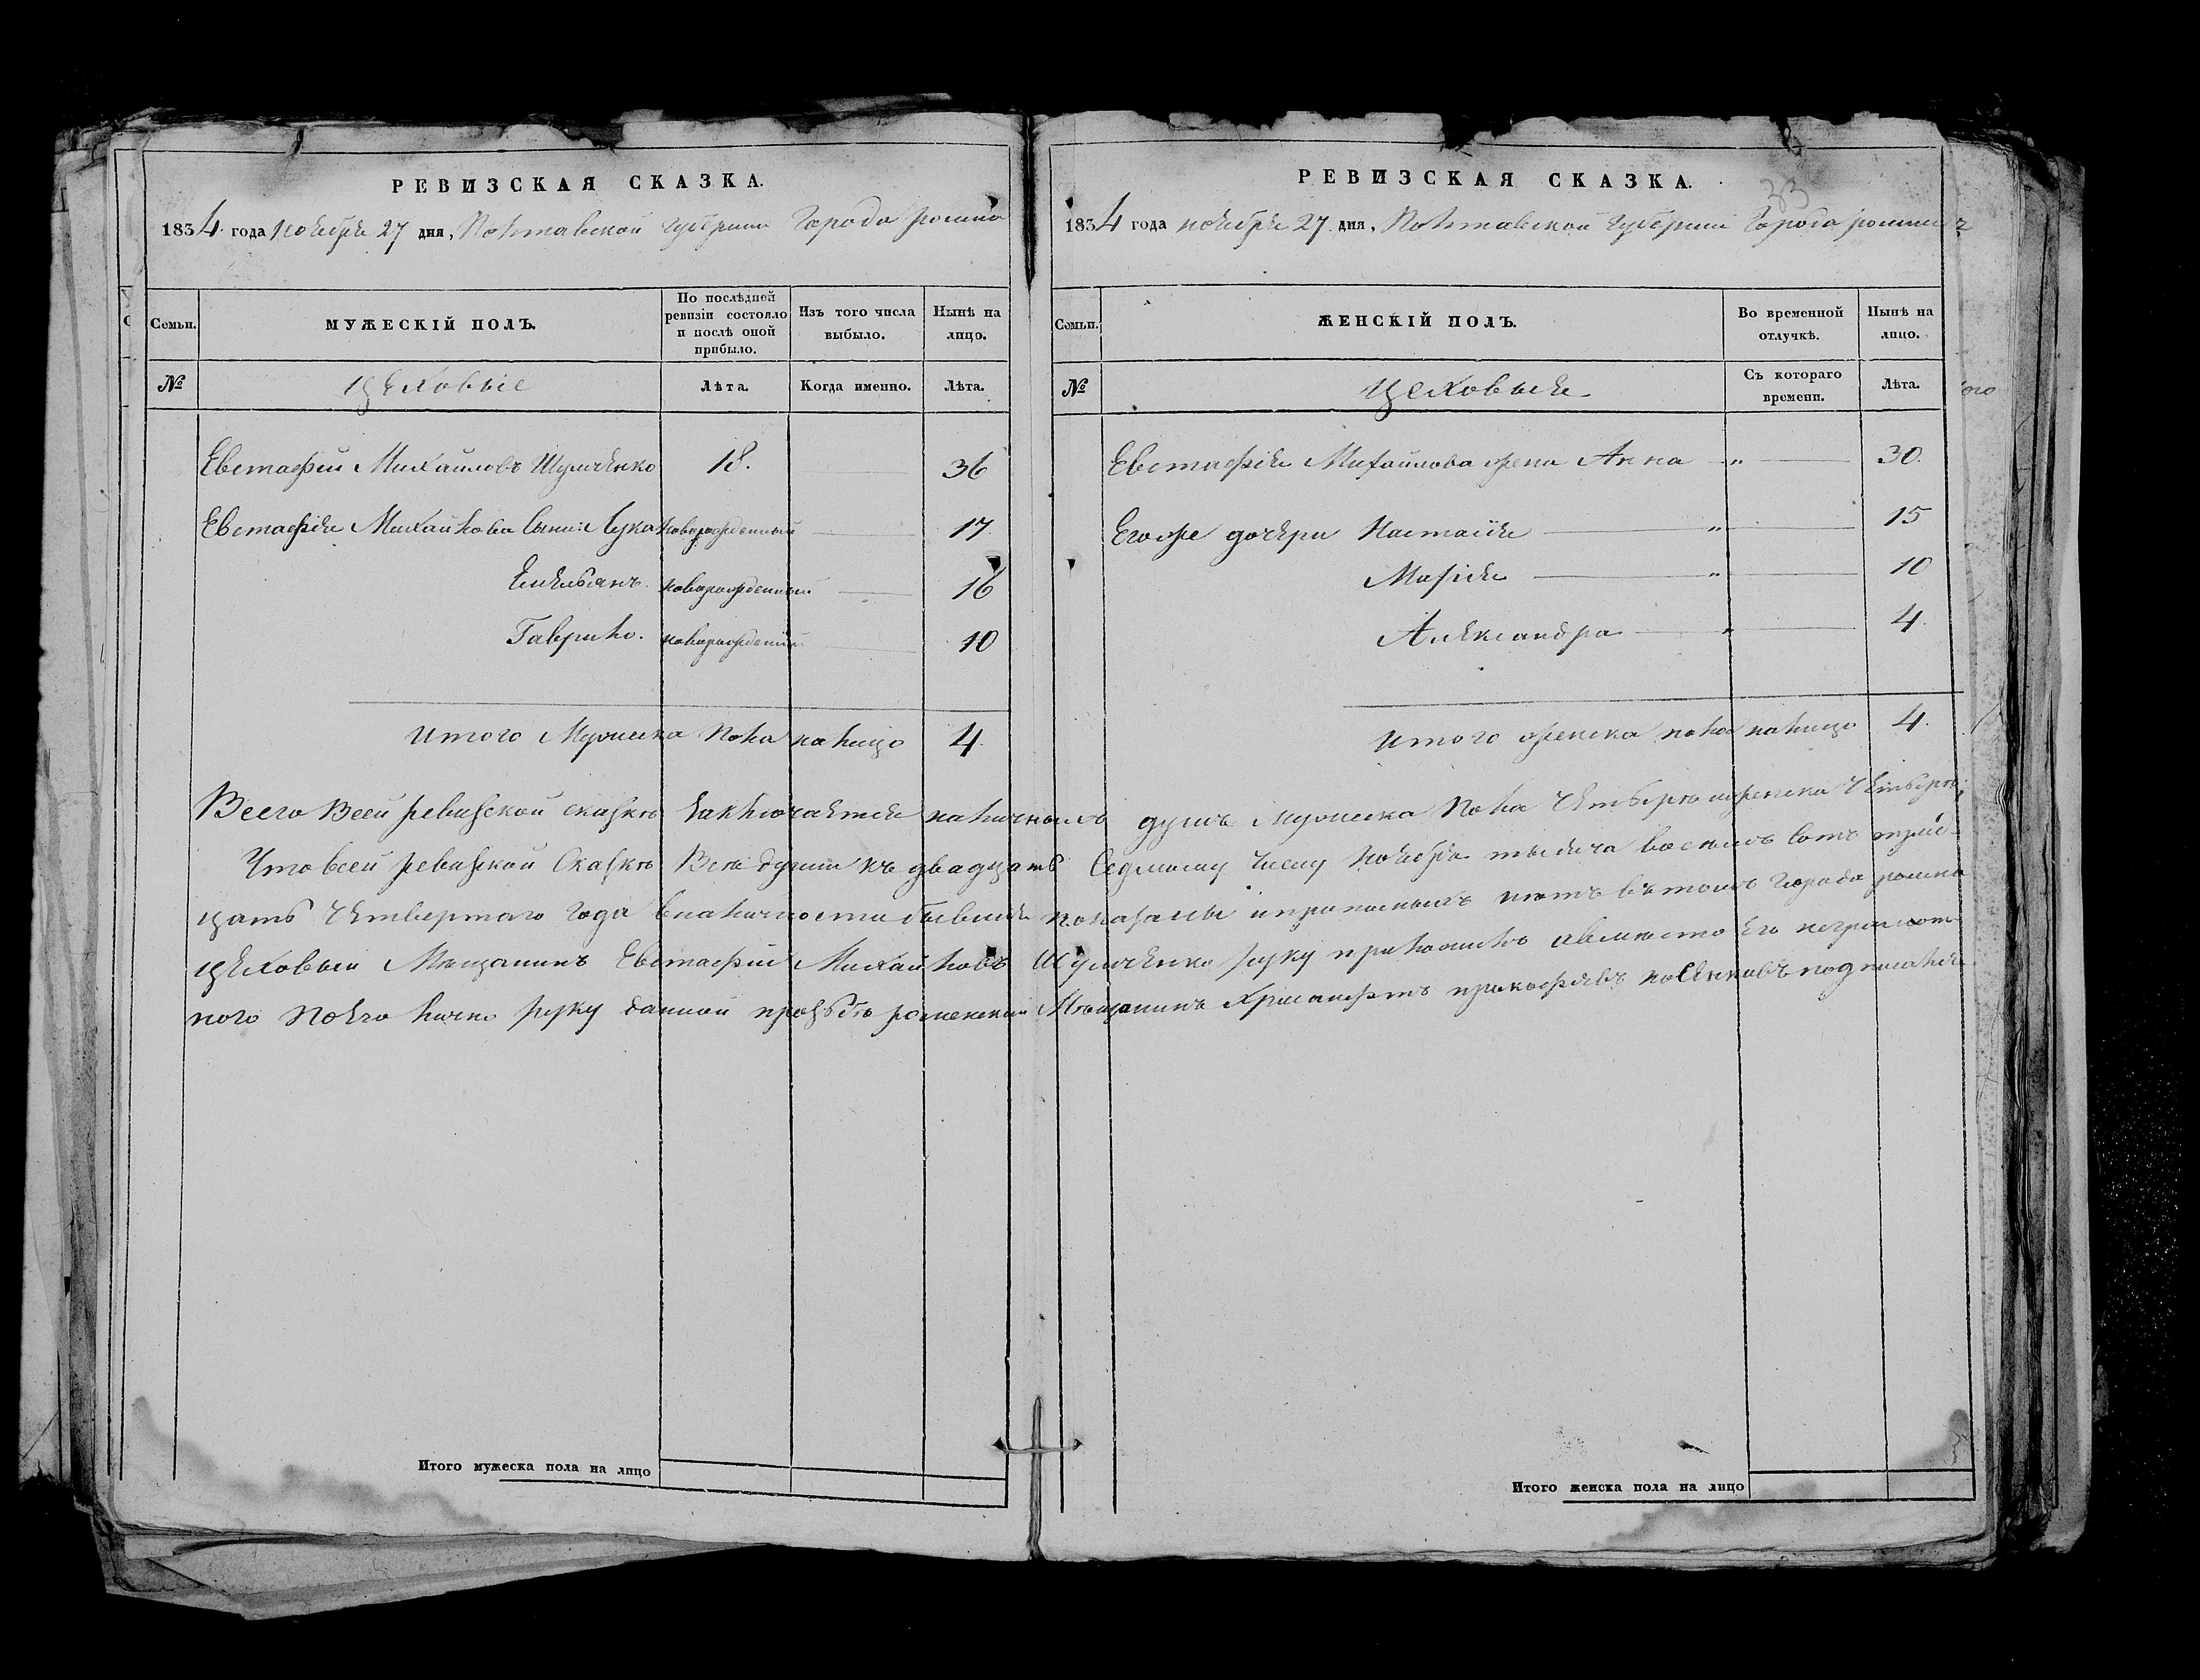 РЕВИЗСКАЯ СКАЗКА.
1834 года ноября 27 дня, Полтавской губернии Города ромна
Семьи.
МУЖЕСКІЙ ПОЛЪ.
По послѣдней ревизіи состояло и послѣ оной прибыло.
Изъ того числа выбыло.
Нынѣ на лицо.
№
цеховые
Лѣта.
Когда именно.
Лѣта.
Евстафій Михайловъ Шумченко 18. 36
Евстафія Михайлова сыни: Лука новорожденный 17
Емельянъ. новорожденный 16
Гаврило. новорожденный 10
Итого Мужеска пола налицо 4.
Итого мужеска пола на лицо
РЕВИЗСКАЯ СКАЗКА.
33
1834 года ноября 27 дня, Полтавской губерніи Города
Семьи.
ЖЕНСКІЙ ПОЛЪ.
Во временной отлучкѣ.
Нынѣ на лицо.
№
цеховыя
Съ котораго времени.
Лѣта.
Евстафія Михайлова жена Анна " 30.
Егоже дочери Настасія " 15
Марія " 10
Александра " 4.
Итого женска пола налицо 4.
Всего Всей ревизской сказкѣ заключается наличныхъ душъ Мужеска пола четырѣ женска четырѣ,
Что всей ревизской Сказкѣ Всѣ души къ двадцать седмому числу ноября тысяча восемь сотъ трид-
цать четвертого года вналичности бывшія показаны ипрописныхъ нѣтъ вътомъ города ромна
цеховый Мѣщанинъ Евстафій Михайловъ Шумченко руку приложилъ авместо его неграмот-
ного поего лично руку данной прозбѣ роменскій Мѣщанинъ
Итого женска пола на лицо